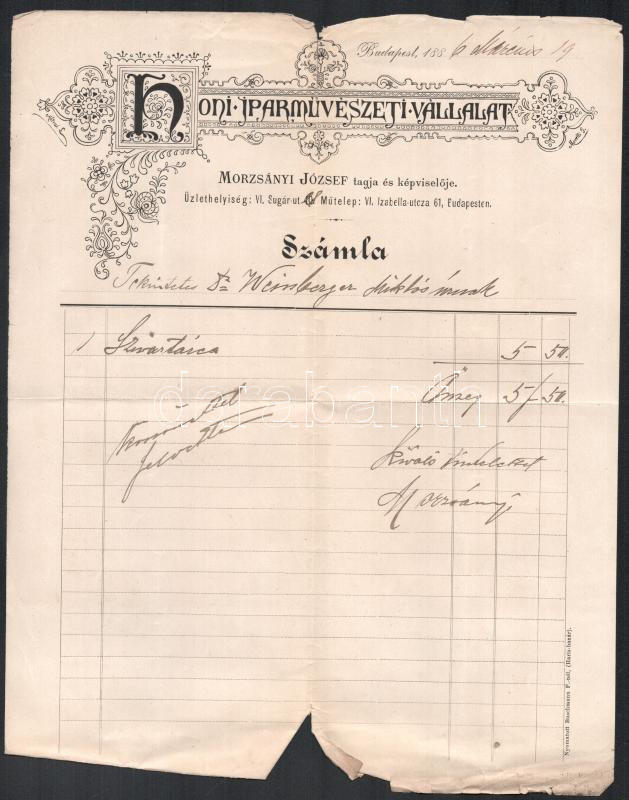 Budapest, 1886 Március 19
HONI · IPARMŰVÉSZETI · VÁLLALAT
MORZSÁNYI JÓZSEF tagja és képviselője.
Üzlethelyiség: VI. Sugár-ut Műtelep: VI. Izabella-utcza 61, Budapesten.
Számla
Tekintetes Dr Weinberger Miklós úrnak
1 Szivartárca 5 50.
Összeg 5/ 50.
darabanth
felvette
Kiváló tisztelettel
Morzsányi
Nyomatott Buschmann F.-nél, (Haris-bazár).